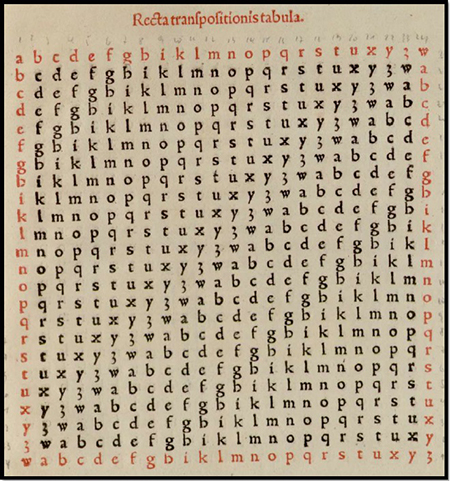 Recta tranſpoſitionis tabula.
a b c d e f g h i k l m n o p q r s t u x y z w
b c d e f g h i k l m n o p q r s t u x y z w a
c d e f g h i k l m n o p q r s t u x y z w a b
d e f g h i k l m n o p q r s t u x y z w a b c
e f g h i k l m n o p q r s t u x y z w a b c d
f g h i k l m n o p q r s t u x y z w a b c d e
g h i k l m n o p q r s t u x y z w a b c d e f
h i k l m n o p q r s t u x y z w a b c d e f g
i k l m n o p q r s t u x y z w a b c d e f g h
k l m n o p q r s t u x y z w a b c d e f g h i
l m n o p q r s t u x y z w a b c d e f g h i k
m n o p q r s t u x y z w a b c d e f g h i k l
n o p q r s t u x y z w a b c d e f g h i k l m
o p q r s t u x y z w a b c d e f g h i k l m n
p q r s t u x y z w a b c d e f g h i k l m n o
q r s t u x y z w a b c d e f g h i k l m n o p
r s t u x y z w a b c d e f g h i k l m n o p q
s t u x y z w a b c d e f g h i k l m n o p q r
t u x y z w a b c d e f g h i k l m n o p q r s
u x y z w a b c d e f g h i k l m n o p q r s t
x y z w a b c d e f g h i k l m n o p q r s t u
y z w a b c d e f g h i k l m n o p q r s t u x
z w a b c d e f g h i k l m n o p q r s t u x y
w a b c d e f g h i k l m n o p q r s t u x y z